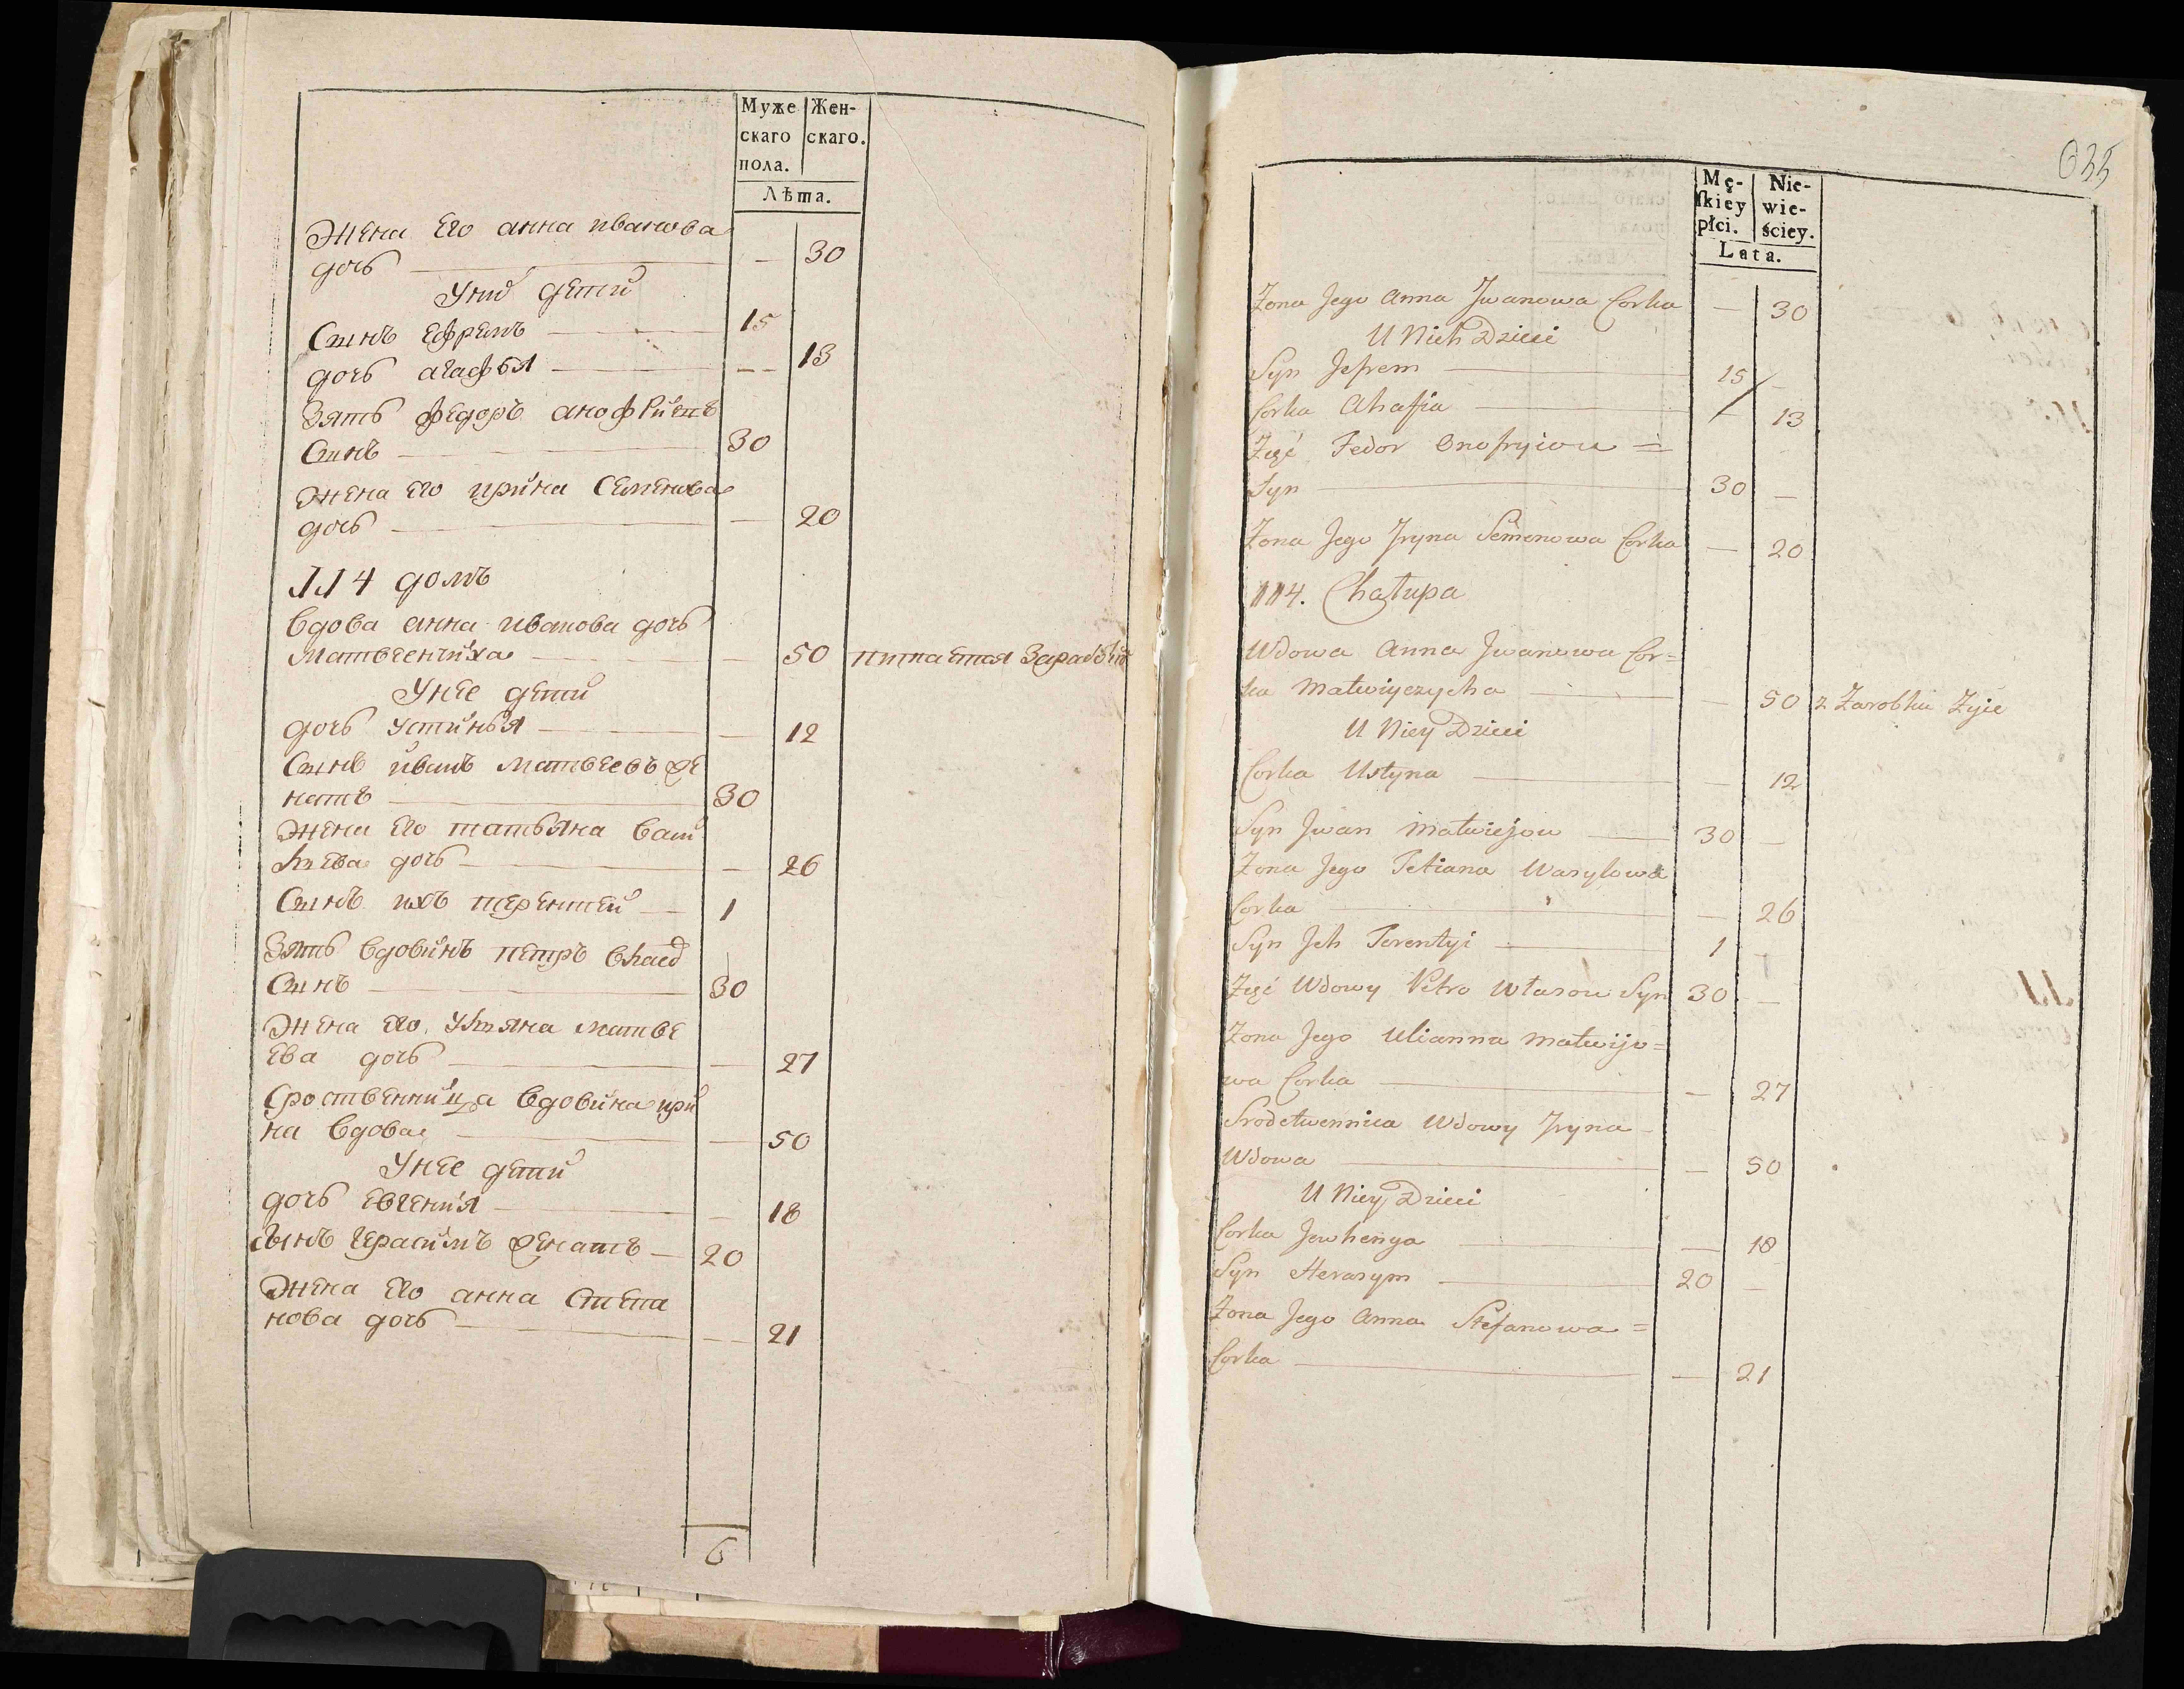 Муже Жен-
скаго скаго.
пола.
Лѣта.
Жена Его анна иванова
дочь — 30
Унихъ дети
Сынъ Ефремъ 15
дочь агафья — 13
Зять федоръ анофриевъ
Сынъ 30
Жена Его ирина Семенова
дочь — 20
114 домъ
Вдова анна иванова дочь
Матвеенчиха — 50 питается
Унее дети
дочь устинья — 12
Сынъ иванъ матвеевъ же
натъ 30
Жена Его татьяна Васи
льева дочь — 26
Сынъ ихъ терентей 1
Зять вдовинъ петръ
Сынъ 30
Жена Его ульяна матве
ева дочь — 27
Сроственница вдовина ири
на вдова — 50
Унее дети
дочь евгения — 18
Сынъ герасимъ женатъ 20
Жена Его анна степа
нова дочь — 21
6
035
Mę- Nie-
ſkiey wie-
płci. ściey.
Lata.
Zona Jego Anna Jwanowa Corka — 30
U Nich Dzieci
Syn Jefrem 15 —
Corka Ahafia — 13
Zięć Fedor Onofryiow =
Syn 30 —
Zona Jego Jryna Semenowa Corka — 20
114. Chałupa
Wdowa Anna Jwanowa Cor=
ka Matwiyczycha — 50 z Zarobku Zyie
U Niey Dzieci
Corka Ustyna — 12
Syn Jwan Matwiejow 30 —
Zona Jego Tetiana Wasylowa
Corka — 26
Syn Jch Terentyi 1 —
Zięć Wdowy Petro Własow Syn 30 —
Zona Jego Ulianna Matwijo=
wa Corka — 27
Srodstwennica Wdowy Jryna
Wdowa — 50
U Niey Dzieci
Corka Jewhenya — 18
Syn Herasym 20 —
Zona Jego Anna Stefanowa =
Corka — 21